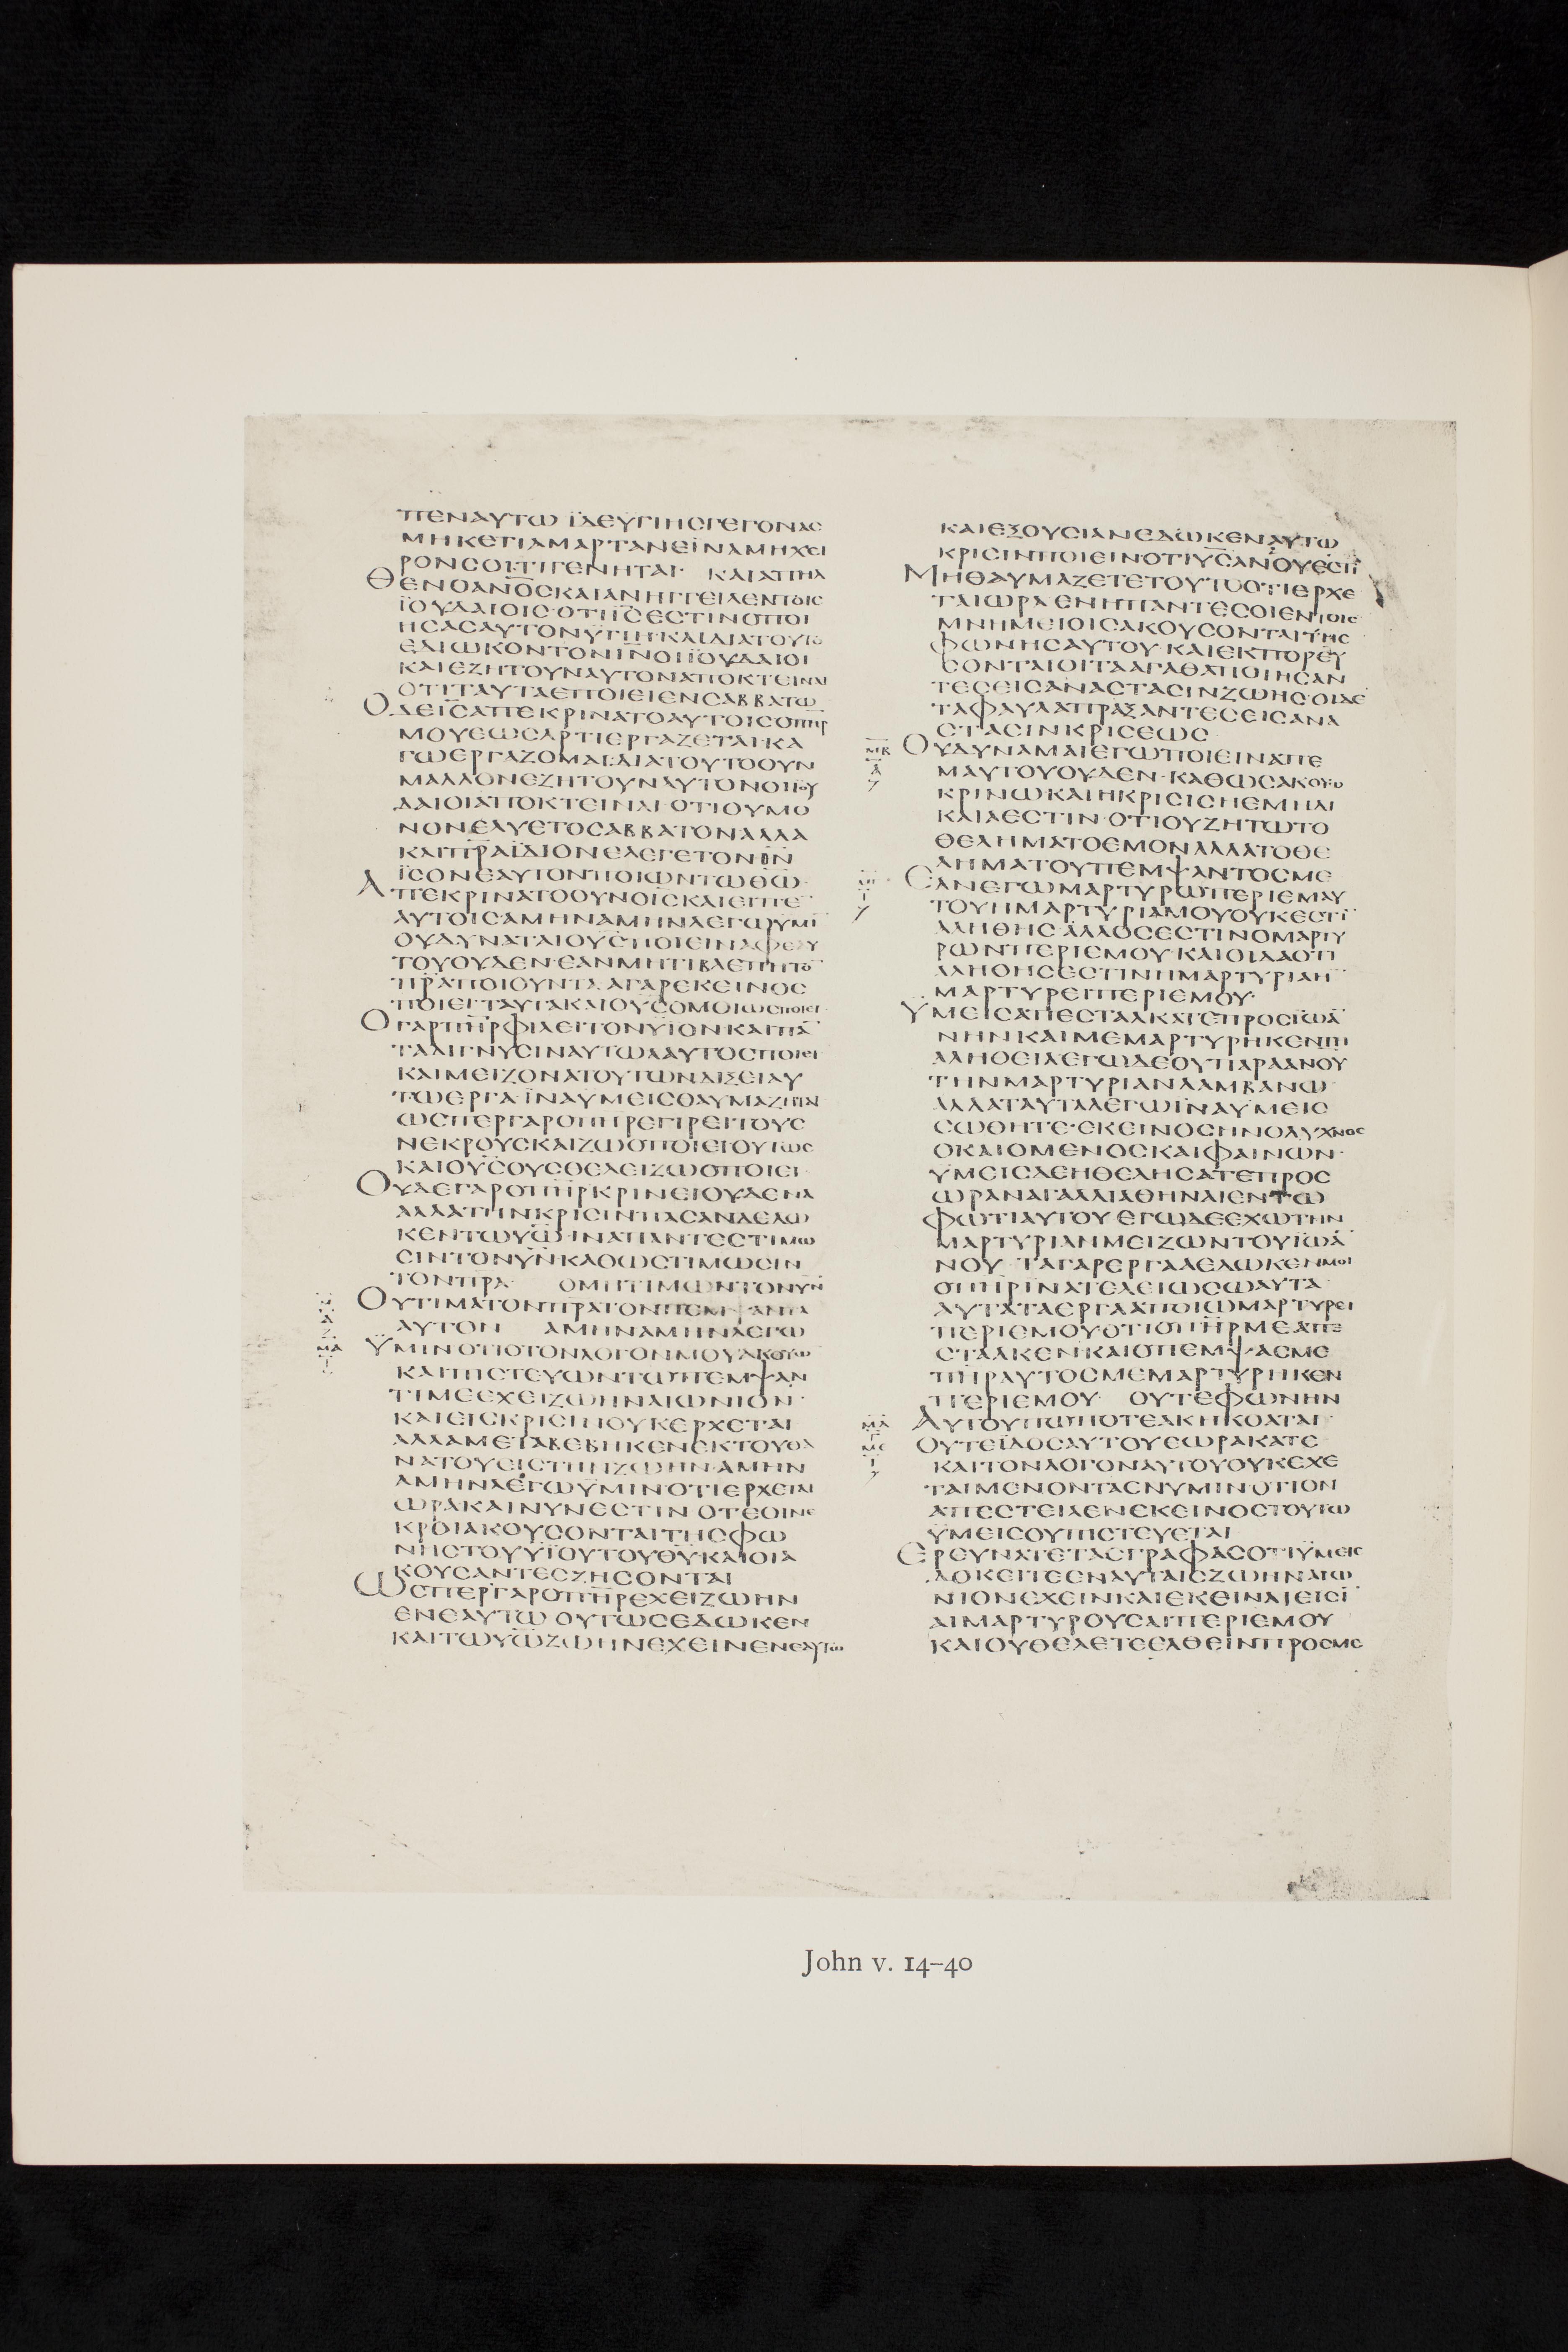 ΠΕΝΑΥΤΩ ΪΔΕΫΓΙΗΣΓΕΓΟΝΑΣ
ΜΗΚΕΤΙΑΜΑΡΤΑΝΕΪΝΑΜΗΧΕΙ
ΡΟΝΣΟΙΤΙΓΕΝΗΤΑΙ· ΚΑΙΑΠΗΛ
ΘΕΝΟΑΝΟΣΚΑΙΑΝΗΓΓΕΙΛΕΝΤΟΙΣ
ΪΟΥΔΑΙΟΙΣ·ΟΤΙΙΣΕΣΤΙΝΟΠΟΙ
ΗΣΑΣΑΥΤΟΝΫΓΙΗ·ΚΑΙΔΙΑΤΟΥΤΟ
ΕΔΙΩΚΟΝΤΟΝΙΝΟΙΪΟΥΔΑΙΟΙ
ΚΑΙΕΖΗΤΟΥΝΑΥΤΟΝΑΠΟΚΤΕΙΝΑΙ
ΟΤΙΤΑΥΤΑΕΠΟΙΕΙΕΝΣΑΒΒΑΤΩ
ΟΔΕΙΣΑΠΕΚΡΙΝΑΤΟΑΥΤΟΙΣΟΠΗΡ
ΜΟΥΕΩΣΑΡΤΙΕΡΓΑΖΕΤΑΙ·ΚΑ
ΓΩΕΡΓΑΖΟΜΑΙ·ΔΙΑΤΟΥΤΟΟΥΝ
ΜΑΛΛΟΝΕΖΗΤΟΥΝΑΥΤΟΝΟΙΪΟΥ
ΔΑΙΟΙΑΠΟΚΤΕΙΝΑΙ·ΟΤΙΟΥΜΟ
ΝΟΝΕΛΥΕΤΟΣΑΒΒΑΤΟΝΑΛΛΑ
ΚΑΙΠΡΑΪΔΙΟΝΕΛΕΓΕΤΟΝΘΝ
ΪΣΟΝΕΑΥΤΟΝΠΟΙΩΝΤΩΘΩ
ΑΠΕΚΡΙΝΑΤΟΟΥΝΟΙΣΚΑΙΕΙΠΕ
ΑΥΤΟΙΣΑΜΗΝΑΜΗΝΛΕΓΩΫΜΙ
ΟΥΔΥΝΑΤΑΙΟΥΣΠΟΙΕΙΝΑΦΕΑΥ
ΤΟΥΟΥΔΕΝ·ΕΑΝΜΗΤΙΒΛΕΠΗΤΟ
ΠΡΑΠΟΙΟΥΝΤΑ·ΑΓΑΡΕΚΕΙΝΟΣ
ΠΟΙΕΙ·ΤΑΥΤΑΚΑΙΟΥΣΟΜΟΙΩΣΠΟΙΕΙ
ΟΓΑΡΠΗΡΦΙΛΕΙΤΟΝΥΙΟΝ·ΚΑΙΠΑ
ΤΑΔΙΓΝΥΣΙΝΑΥΤΩΑΑΥΤΟΣΠΟΙΕΙ
ΚΑΙΜΕΙΖΟΝΑΤΟΥΤΩΝΔΙΞΕΙΑΥ
ΤΩΕΡΓΑ·ΪΝΑΥΜΕΙΣΘΑΥΜΑΖΗΤΑΙ
ΩΣΠΕΡΓΑΡΟΠΗΡΕΓΙΡΕΙΤΟΥΣ
ΝΕΚΡΟΥΣΚΑΙΖΩΟΠΟΙΕΙΟΥΤΩΣ
ΚΑΙΟΥΣΟΥΣΘΕΛΕΙΖΩΟΠΟΙΕΙ
ΟΥΔΕΓΑΡΟΠΗΡΚΡΙΝΕΙΟΥΔΕΝΑ
ΑΛΛΑΤΗΝΚΡΙΣΙΝΠΑΣΑΝΔΕΔΩ
ΚΕΝΤΩΥΩ·ΙΝΑΠΑΝΤΕΣΤΙΜΩ
ΣΙΝΤΟΝΥΝΚΑΘΩΣΤΙΜΩΣΙΝ
ΤΟΝΠΡΑ· ΟΜΗΤΙΜΩΝΤΟΝΥΝ
ΟΥΤΙΜΑΤΟΝΠΡΑΤΟΝΠΕΜΨΑΝΤΑ
ΑΥΤΟΝ ΑΜΗΝΑΜΗΝΛΕΓΩ
ΫΜΙΝΟΤΙΟΤΟΝΛΟΓΟΝΜΟΥΑΚΟΥΩ
ΚΑΙΠΙΣΤΕΥΩΝΤΩΠΕΜΨΑΝ
ΤΙΜΕΕΧΕΙΖΩΗΝΑΙΩΝΙΟΝ·
ΚΑΙΕΙΣΚΡΙΣΙΝΟΥΚΕΡΧΕΤΑΙ
ΑΛΛΑΜΕΤΑΒΕΒΗΚΕΝΕΚΤΟΥΘΑ
ΝΑΤΟΥΕΙΣΤΗΝΖΩΗΝ·ΑΜΗΝ
ΑΜΗΝΛΕΓΩΫΜΙΝΟΤΙΕΡΧΕΤΑΙ
ΩΡΑΚΑΙΝΥΝΕΣΤΙΝ ΟΤΕΟΙΝΕ
ΚΡΟΙΑΚΟΥΣΟΝΤΑΙΤΗΣΦΩ
ΝΗΣΤΟΥΥΪΟΥΤΟΥΘΥ·ΚΑΙΟΙΑ
ΚΟΥΣΑΝΤΕΣΖΗΣΟΝΤΑΙ
ΩΣΠΕΡΓΑΡΟΠΗΡΕΧΕΙΖΩΗΝ
ΕΝΕΑΥΤΩ ΟΥΤΩΣΕΔΩΚΕΝ
ΚΑΙΤΩΥΩΖΩΗΝΕΧΕΙΝΕΝΕΑΥΤΩ
ΚΑΙΕΞΟΥΣΙΑΝΕΔΩΚΕΝΑΥΤΩ
ΚΡΙΣΙΝΠΟΙΕΙΝΟΤΙΥΣΑΝΟΥΕΣΤΙ
ΜΗΘΑΥΜΑΖΕΤΕΤΟΥΤΟΟΤΙΕΡΧΕ
ΤΑΙΩΡΑ ΕΝΗΠΑΝΤΕΣΟΙΕΝΤΟΙΣ
ΜΝΗΜΕΙΟΙΣΑΚΟΥΣΟΝΤΑΙΤΗΣ
ΦΩΝΗΣΑΥΤΟΥ·ΚΑΙΕΚΠΟΡΕΥ
ΣΟΝΤΑΙΟΙΤΑΑΓΑΘΑΠΟΙΗΣΑΝ
ΤΕΣΕΙΣΑΝΑΣΤΑΣΙΝΖΩΗΣ·ΟΙΔΕ
ΤΑΦΑΥΛΑΠΡΑΞΑΝΤΕΣΕΙΣΑΝΑ
ΣΤΑΣΙΝΚΡΙΣΕΩΣ
ΜΒ
Α
ΟΥΔΥΝΑΜΑΙΕΓΩΠΟΙΕΙΝΑΠΕ
ΜΑΥΤΟΥΟΥΔΕΝ·ΚΑΘΩΣΑΚΟΥΩ
ΚΡΙΝΩΚΑΙΗΚΡΙΣΙΣΗΕΜΗΔΙ
ΚΑΙΑΕΣΤΙΝ·ΟΤΙΟΥΖΗΤΩΤΟ
ΘΕΛΗΜΑΤΟΕΜΟΝΑΛΛΑΤΟΘΕ
ΛΗΜΑΤΟΥΠΕΜΨΑΝΤΟΣΜΕ
ΕΑΝΕΓΩΜΑΡΤΥΡΩΠΕΡΙΕΜΑΥ
ΤΟΥΗΜΑΡΤΥΡΙΑΜΟΥΟΥΚΕΣΤΙ
ΑΛΗΘΗΣ·ΑΛΛΟΣΕΣΤΙΝΟΜΑΡΤΥ
ΡΩΝΠΕΡΙΕΜΟΥ·ΚΑΙΟΙΔΑΟΤΙ
ΑΛΗΘΗΣΕΣΤΙΝΗΜΑΡΤΥΡΙΑΗ
ΜΑΡΤΥΡΕΙΠΕΡΙΕΜΟΥ·
ΫΜΕΙΣΑΠΕΣΤΑΛΚΑΤΕΠΡΟΣΪΩΑ
ΝΗΝΚΑΙΜΕΜΑΡΤΥΡΗΚΕΝΤΗ
ΑΛΗΘΕΙΑ·ΕΓΩΔΕΟΥΠΑΡΑΑΝΟΥ
ΤΗΝΜΑΡΤΥΡΙΑΝΛΑΜΒΑΝΩ
ΑΛΛΑΤΑΥΤΑΛΕΓΩΪΝΑΥΜΕΙΣ
ΣΩΘΗΤΕ·ΕΚΕΙΝΟΣΗΝΟΛΥΧΝΟΣ
ΟΚΑΙΟΜΕΝΟΣΚΑΙΦΑΙΝΩΝ·
ΥΜΕΙΣΔΕΗΘΕΛΗΣΑΤΕΠΡΟΣ
ΩΡΑΝΑΓΑΛΛΙΑΘΗΝΑΙΕΝΤΩ
ΦΩΤΙΑΥΤΟΥ ΕΓΩΔΕΕΧΩΤΗΝ
ΜΑΡΤΥΡΙΑΝΜΕΙΖΩΝΤΟΥΪΩΑ
ΝΟΥ· ΤΑΓΑΡΕΡΓΑΑΕΔΩΚΕΝΜΟΙ
ΟΠΗΡΙΝΑΤΕΛΕΙΩΣΩΑΥΤΑ
ΑΥΤΑΤΑΕΡΓΑΑΠΟΙΩΜΑΡΤΥΡΕΙ
ΠΕΡΙΕΜΟΥΟΤΙΟΠΗΡΜΕΑΠΕ
ΣΤΑΛΚΕΝ·ΚΑΙΟΠΕΜΨΑΣΜΕ
ΠΗΡΑΥΤΟΣΜΕΜΑΡΤΥΡΗΚΕΝ
ΠΕΡΙΕΜΟΥ· ΟΥΤΕΦΩΝΗΝ
ΑΥΤΟΥΠΩΠΟΤΕΑΚΗΚΟΑΤΑΙ·
ΟΥΤΕΪΔΟΣΑΥΤΟΥΕΩΡΑΚΑΤΕ
ΚΑΙΤΟΝΛΟΓΟΝΑΥΤΟΥΟΥΚΕΧΕ
ΤΑΙΜΕΝΟΝΤΑΕΝΥΜΙΝ·ΟΤΙΟΝ
ΑΠΕΣΤΕΙΛΕΝΕΚΕΙΝΟΣΤΟΥΤΩ
ΫΜΕΙΣΟΥΠΙΣΤΕΥΕΤΑΙ
ΕΡΕΥΝΑΤΕΤΑΣΓΡΑΦΑΣΟΤΙΫΜΕΙΣ
ΔΟΚΕΙΤΕΕΝΑΥΤΑΙΣΖΩΗΝΑΙΩ
ΝΙΟΝΕΧΕΙΝ·ΚΑΙΕΚΕΙΝΑΙΕΙΣΙ
ΑΙΜΑΡΤΥΡΟΥΣΑΙΠΕΡΙΕΜΟΥ
ΚΑΙΟΥΘΕΛΕΤΕΕΛΘΕΙΝΠΡΟΣΜΕ
John v. 14–40